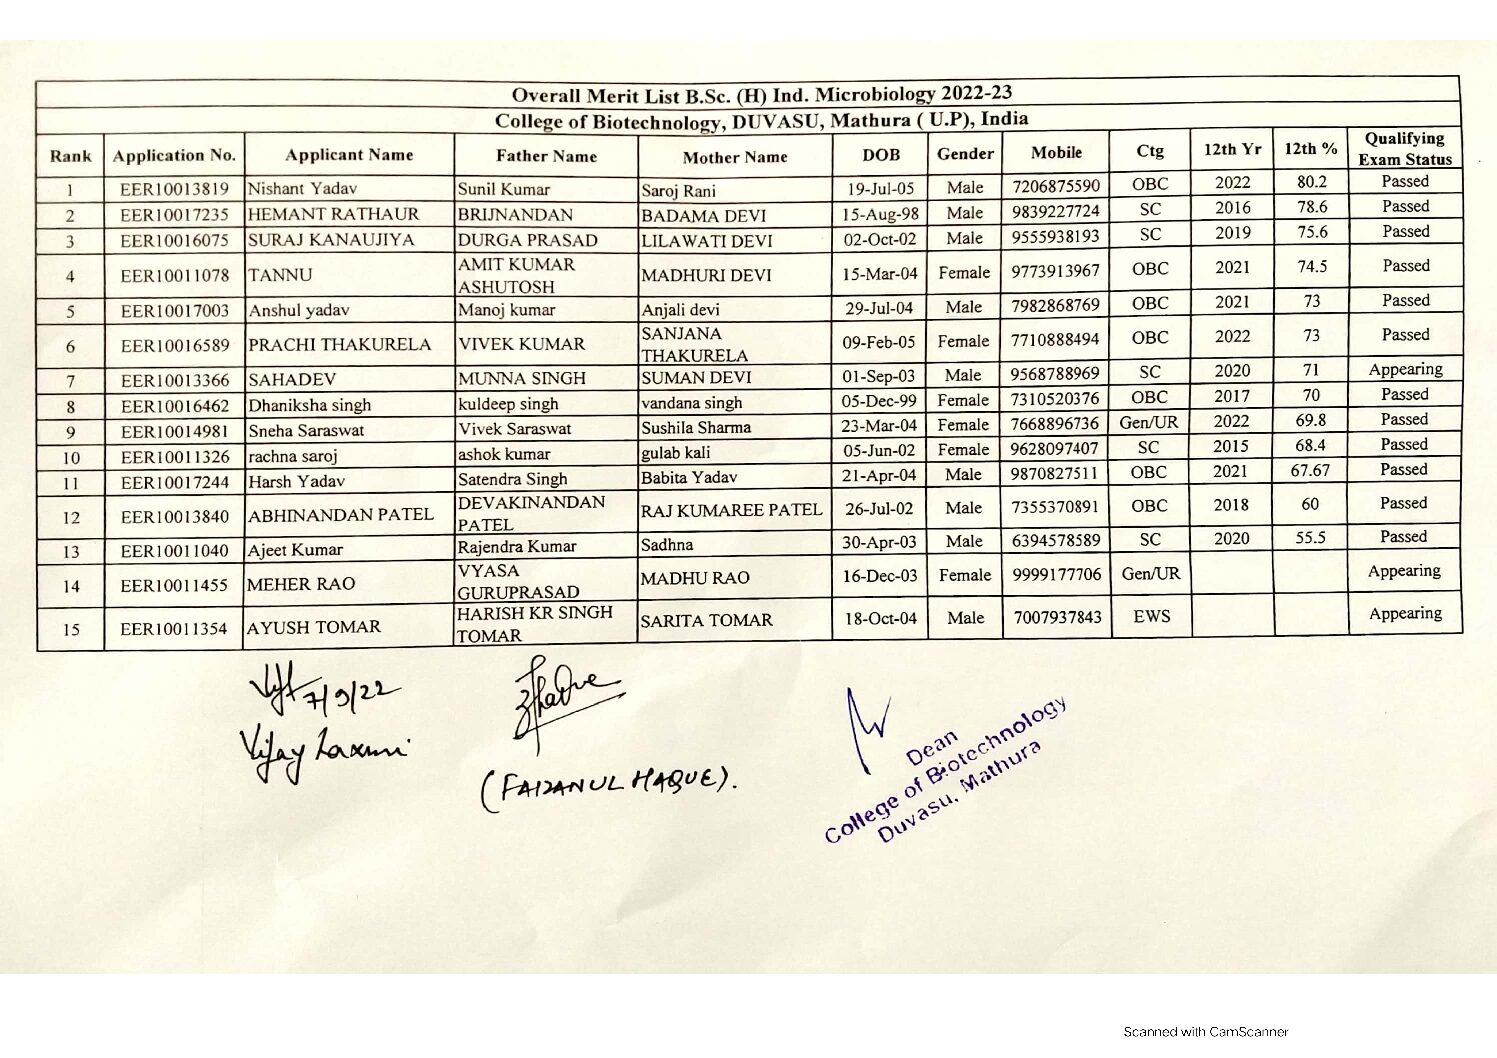 Overall Merit List B.Sc. (H) Ind. Microbiology 2022-23
College of Biotechnology, DUVASU, Mathura ( U.P), India
Rank Application No. Applicant Name Father Name Mother Name DOB Gender Mobile Ctg 12th Yr 12th % Qualifying Exam Status
1 EER10013819 Nishant Yadav Sunil Kumar Saroj Rani 19-Jul-05 Male 7206875590 OBC 2022 80.2 Passed
2 EER10017235 HEMANT RATHAUR BRIJNANDAN BADAMA DEVI 15-Aug-98 Male 9839227724 SC 2016 78.6 Passed
3 EER10016075 SURAJ KANAUJIYA DURGA PRASAD LILAWATI DEVI 02-Oct-02 Male 9555938193 SC 2019 75.6 Passed
4 EER10011078 TANNU AMIT KUMAR ASHUTOSH MADHURI DEVI 15-Mar-04 Female 9773913967 OBC 2021 74.5 Passed
5 EER10017003 Anshul yadav Manoj kumar Anjali devi 29-Jul-04 Male 7982868769 OBC 2021 73 Passed
6 EER10016589 PRACHI THAKURELA VIVEK KUMAR SANJANA THAKURELA 09-Feb-05 Female 7710888494 OBC 2022 73 Passed
7 EER10013366 SAHADEV MUNNA SINGH SUMAN DEVI 01-Sep-03 Male 9568788969 SC 2020 71 Appearing
8 EER10016462 Dhaniksha singh kuldeep singh vandana singh 05-Dec-99 Female 7310520376 OBC 2017 70 Passed
9 EER10014981 Sneha Saraswat Vivek Saraswat Sushila Sharma 23-Mar-04 Female 7668896736 Gen/UR 2022 69.8 Passed
10 EER10011326 rachna saroj ashok kumar gulab kali 05-Jun-02 Female 9628097407 SC 2015 68.4 Passed
11 EER10017244 Harsh Yadav Satendra Singh Babita Yadav 21-Apr-04 Male 9870827511 OBC 2021 67.67 Passed
12 EER10013840 ABHINANDAN PATEL DEVAKINANDAN PATEL RAJ KUMAREE PATEL 26-Jul-02 Male 7355370891 OBC 2018 60 Passed
13 EER10011040 Ajeet Kumar Rajendra Kumar Sadhna 30-Apr-03 Male 6394578589 SC 2020 55.5 Passed
14 EER10011455 MEHER RAO VYASA GURUPRASAD MADHU RAO 16-Dec-03 Female 9999177706 Gen/UR Appearing
15 EER10011354 AYUSH TOMAR HARISH KR SINGH TOMAR SARITA TOMAR 18-Oct-04 Male 7007937843 EWS Appearing
7/9/22
Vijay Laxmi
(FAIZANUL HAQUE).
Dean
College of Biotechnology
Duvasu, Mathura
Scanned with CamScanner